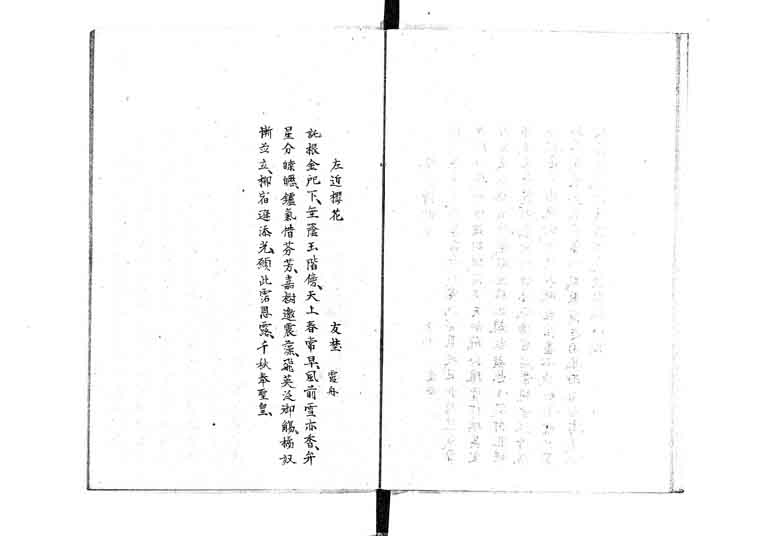 左近櫻花 友埜 霞舟
託根金戺下、垂蔭玉階傍、天上春常早、風前雪亦香、弁
星分 鑪氣借芬芳、嘉樹邀宸藻、飛英泛御觴、橘奴
慚並立、柳宿遜添光、願此霑恩露、千秋奉聖皇、